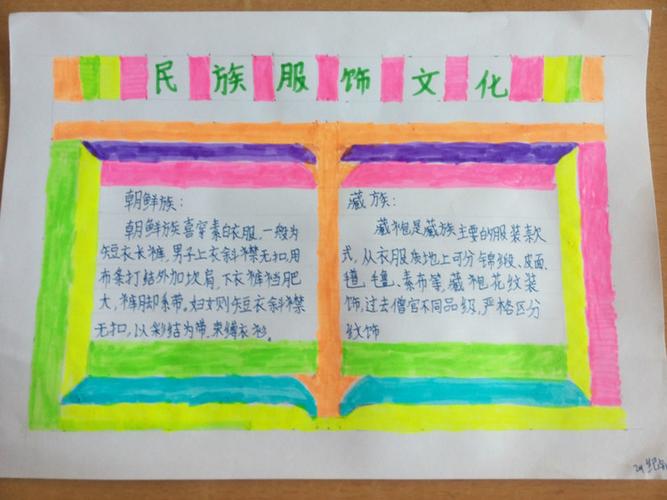 民族服饰文化
朝鲜族：
朝鲜族喜穿素白衣服，一般为
短衣长裤，男子上衣斜襟无扣，用
布条打结外加坎肩，下衣裤裆肥
大，裤脚系带。妇女则短衣斜襟
无扣，以彩结为带，束缚衣衫。
藏族：
藏袍是藏族主要的服装款
式，从衣服质地上可分锦缎、皮面、
氆氇、素布等，藏袍花纹装
饰，过去僧官不同品级，严格区分
纹饰